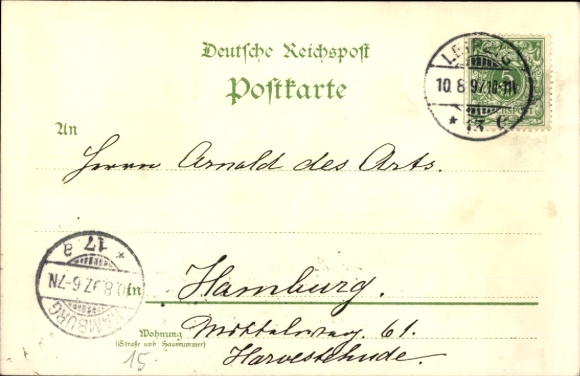 Deutsche Reichspost
Postkarte
LEIPZIG
10.8.97.
* 13 c
5
An
Herrn Arnold des Arts.
* 17 a
10.8.97.6-7N.
HAMBURG
in
Hamburg.
Wohnung
(Straße und Hausnummer)
Mittelweg. 61.
Harvestehude.
15.